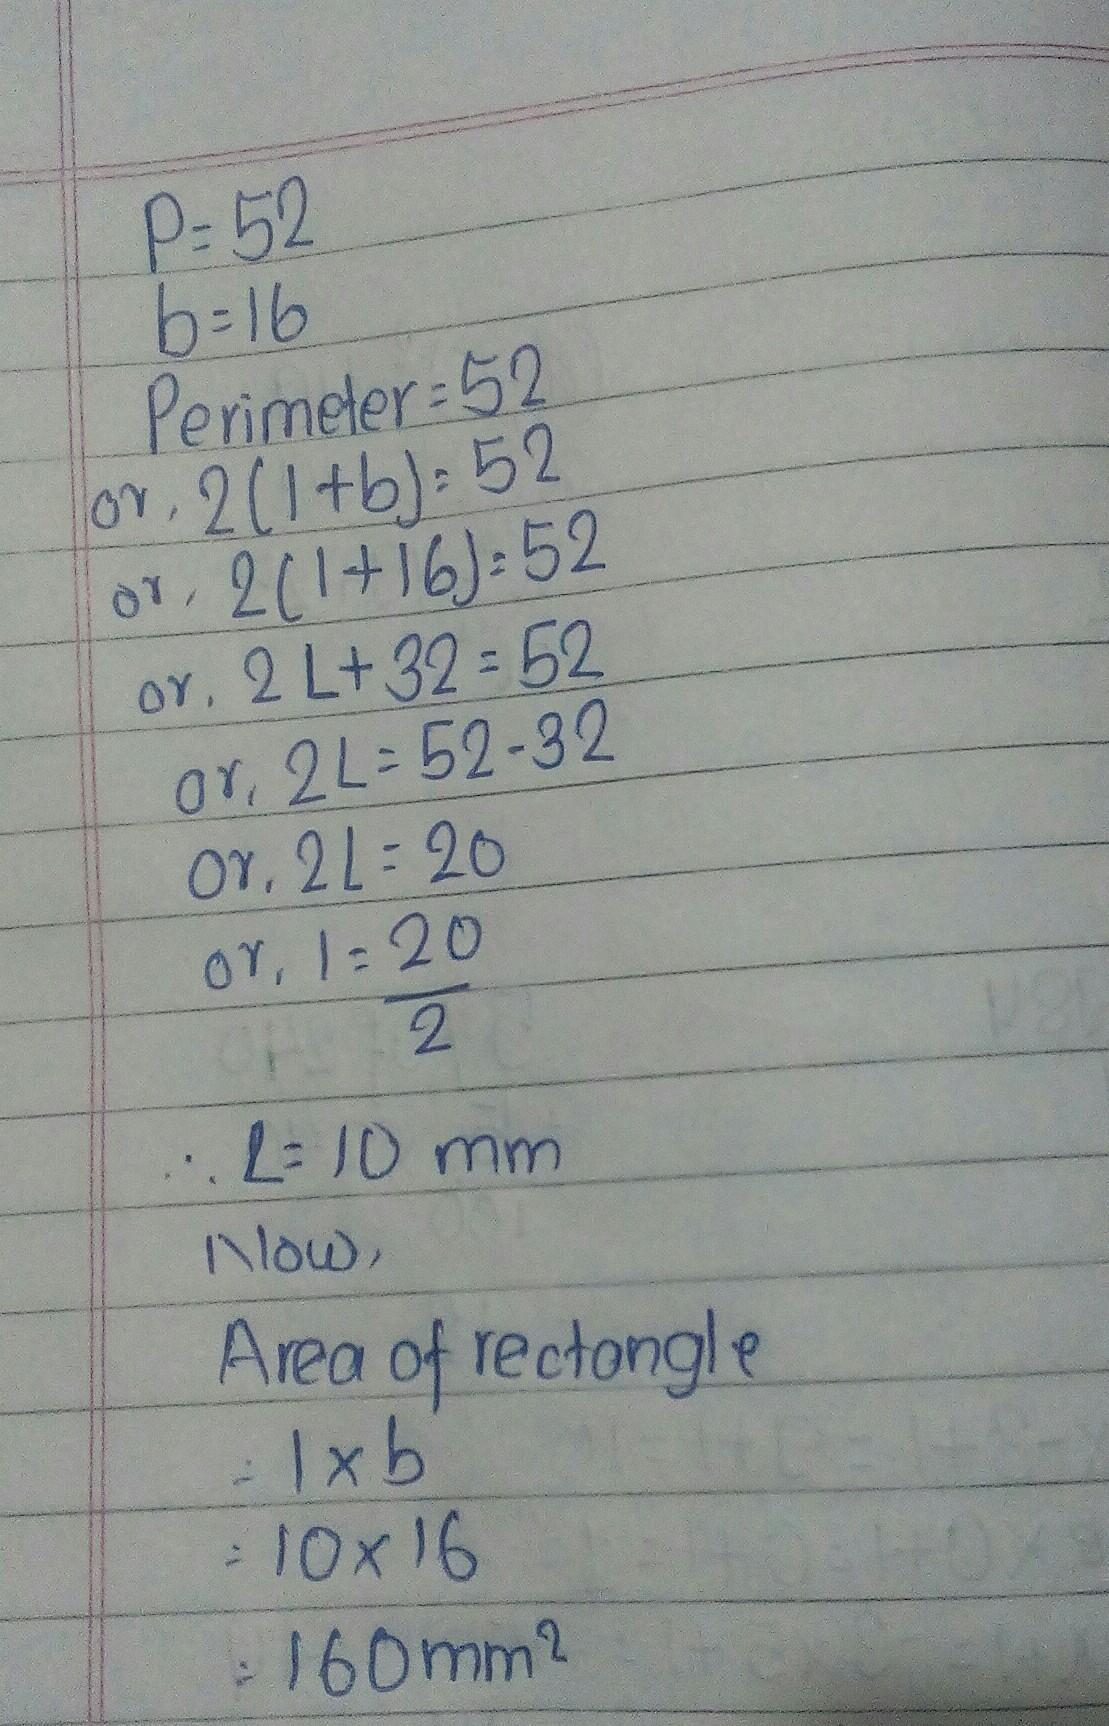 P=52
b=16
Perimeter=52
or, 2(l+b)=52
or, 2(l+16)=52
or, 2L+32=52
or, 2L=52-32
or, 2L=20
or, l=20/2
∴ L=10 mm
Now,
Area of rectongle
= l×b
= 10×16
= 160mm²